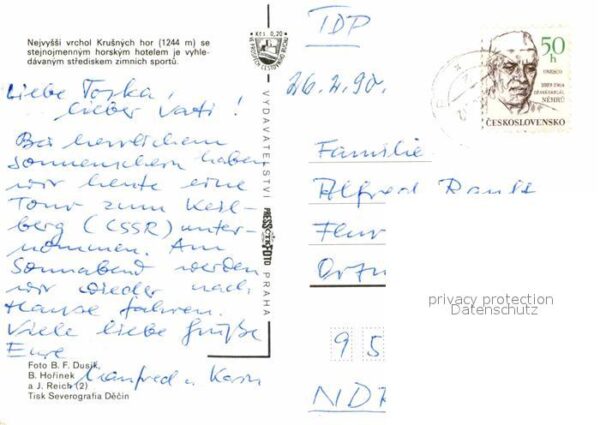 Nejvyšší vrchol Krušných hor (1244 m) se
stejnojmenným horským hotelem je vyhle-
dávaným střediskem zimních sportů.
Liebe Toska,
lieber Vati!
Bei herrlichem
Sonnenschein haben
wir heute eine
Tour zum Keil-
berg (CSSR) unter-
nommen. Am
Sonnabend werden
wir wieder nach
Hause fahren.
Viele liebe Grüße
Eure
Manfred u. Karin
Foto B. F. Dusík,
B. Hořínek
a J. Reich (2)
Tisk Severografia Děčín
Kčs 0,20
VYDAVATELSTVÍ
PRESSFOTO
PRAHA
TDP
26.2.90.
50
h
UNESCO
1889-1964
DŽAVÁHARLÁL
NÉHRÚ
ČESKOSLOVENSKO
Familie
Alfred
Flur
95
NDR
privacy protection
Datenschutz